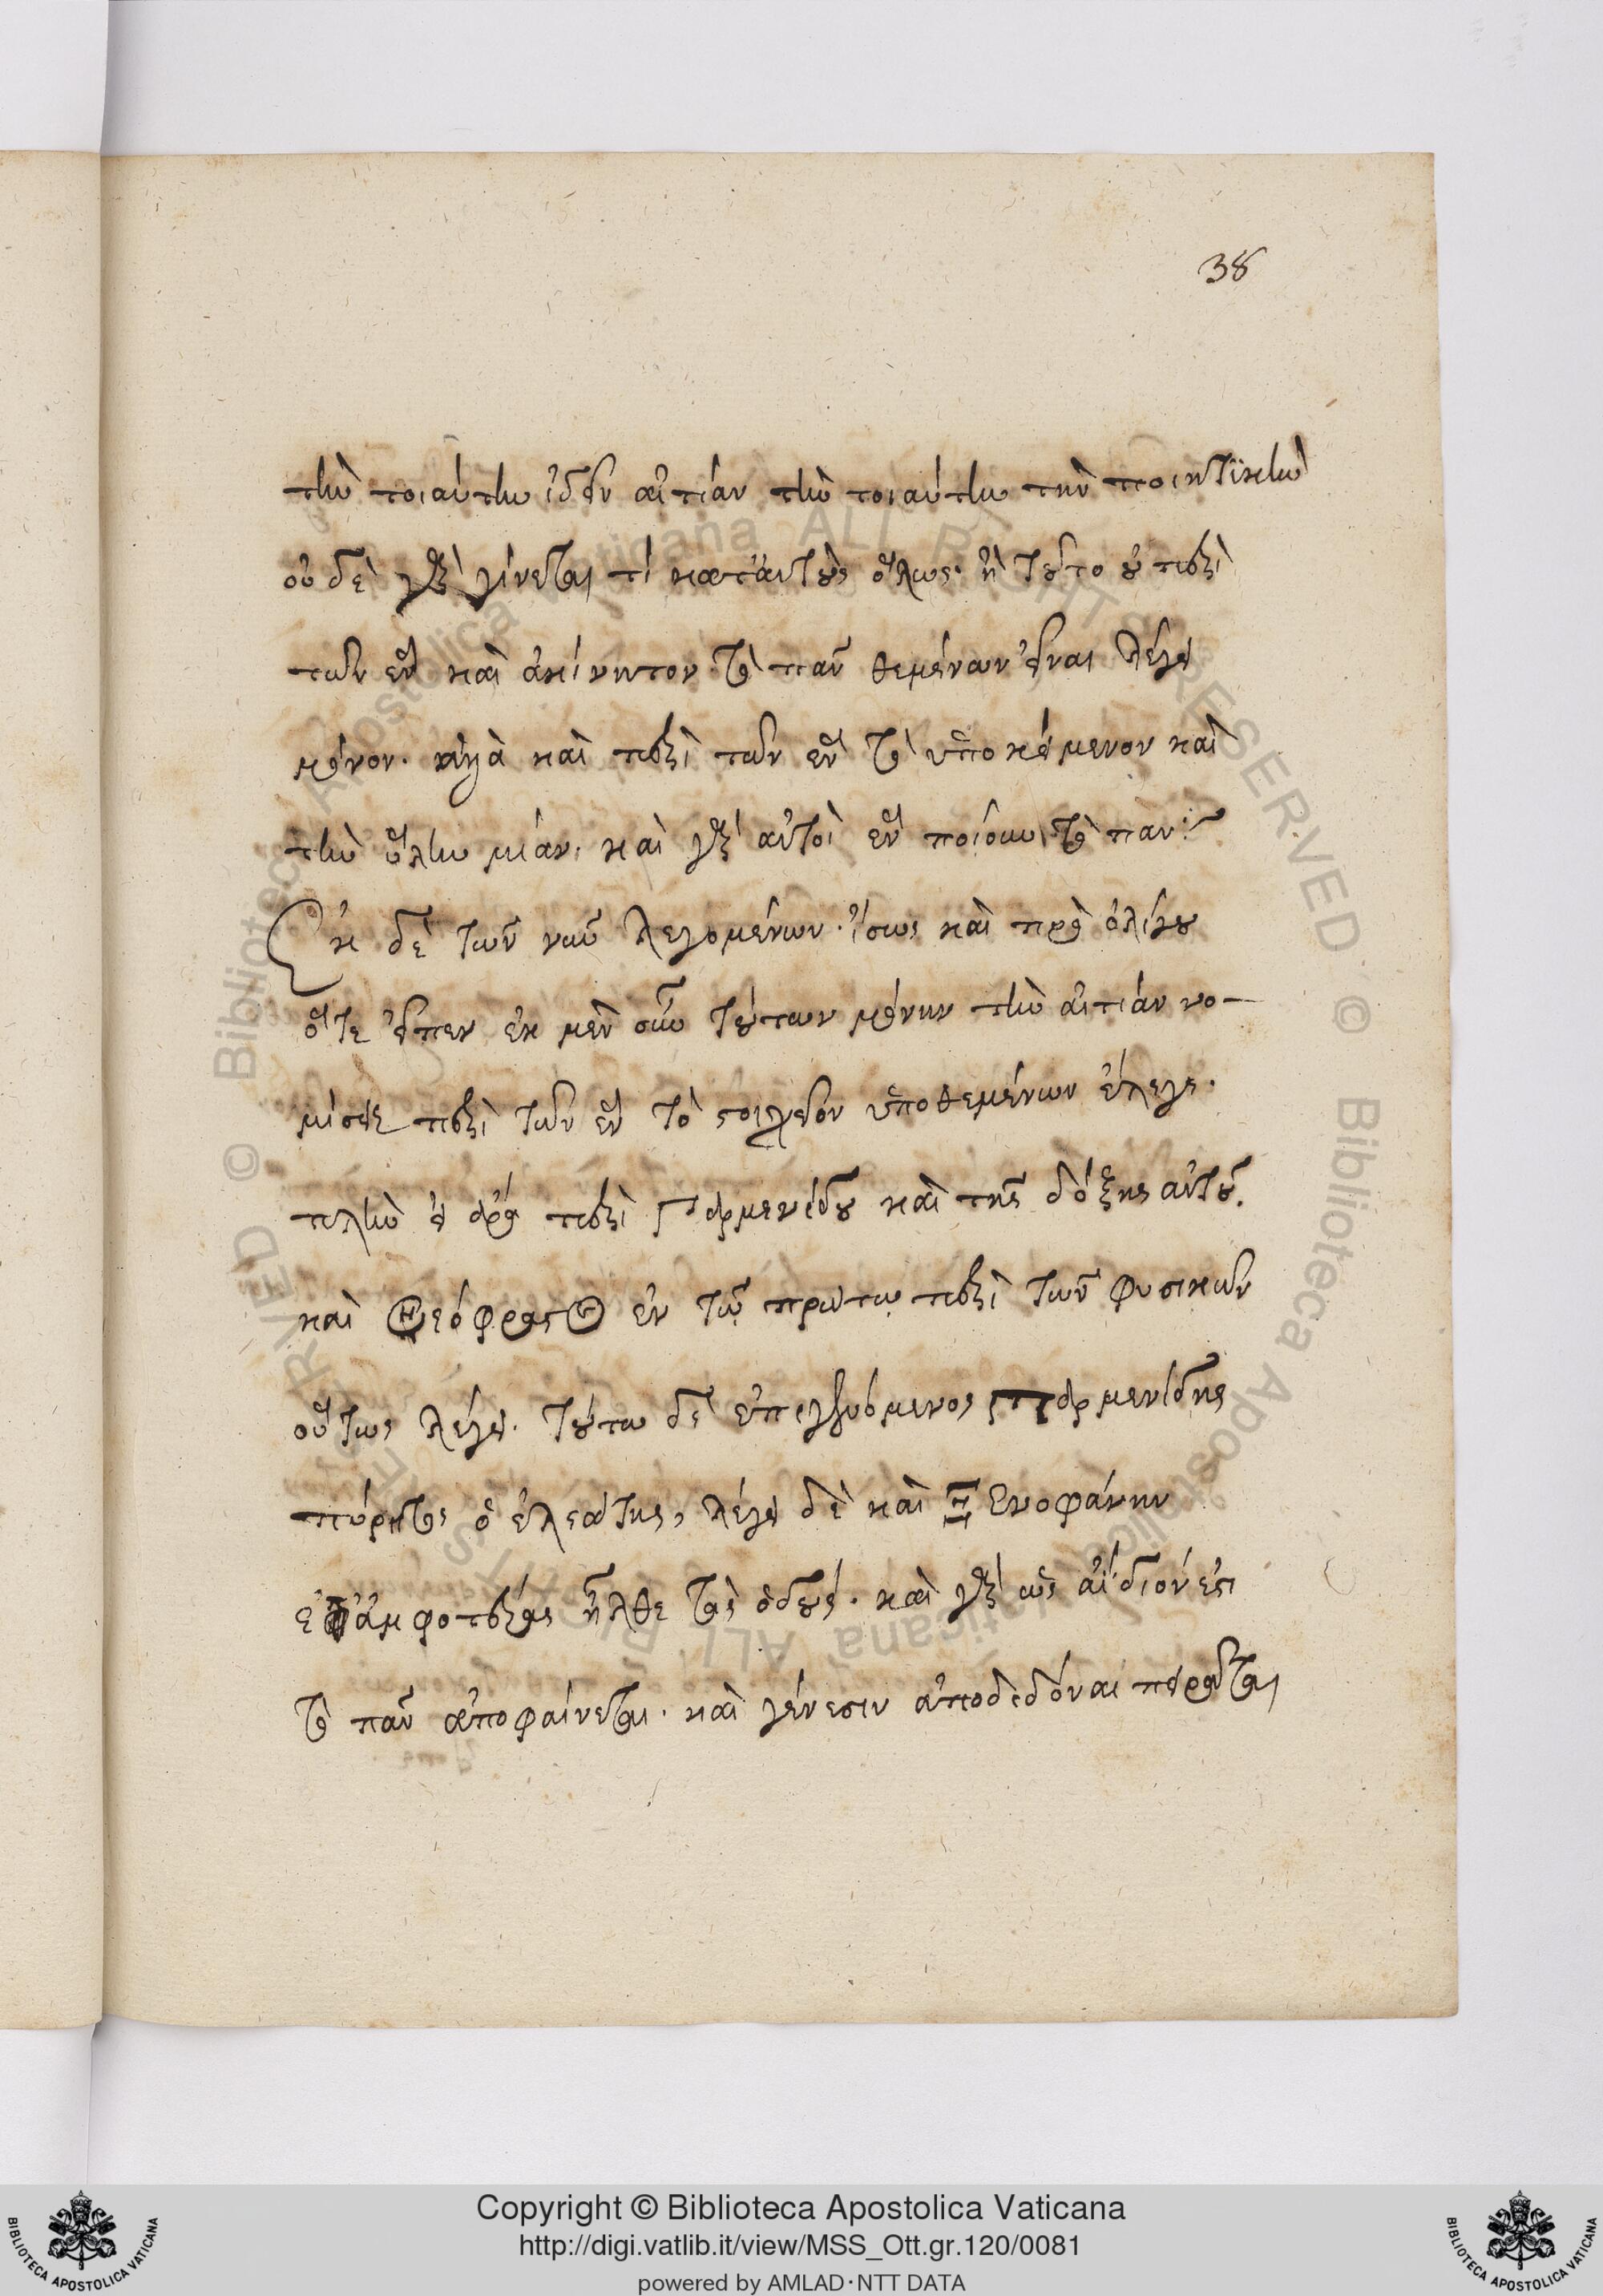 38
τὴν τοιαύτην ἰδεῖν αἰτίαν τὴν τοιαύτην τὴν ποιητικὴν
οὐδὲ γὰρ γίνεταί τι κατ' αὐτοὺς ὅλως· ἢ τοῦτο οὐ περὶ
τῶν ἓν καὶ ἀκίνητον τὸ πᾶν θεμένων εἶναι λέγει
μόνον. ἀλλὰ καὶ περὶ τῶν ἓν τὸ ὑποκείμενον καὶ
τὴν ὕλην μίαν. καὶ γὰρ αὐτοὶ ἓν ποιοῦσι τὸ πᾶν:
Ἐκ δὲ τῶν νῦν λεγομένων. ἴσως καὶ πρὸ ὀλίγου
ὅτε εἶπεν ἐκ μὲν οὖν τούτων μόνην τὴν αἰτίαν νο-
μίσειε περὶ τῶν ἓν τὸ στοιχεῖον ὑποθεμένων ἔλεγε.
πλὴν εἰ ἄρα περὶ Παρμενίδου καὶ τῆς δόξης αὐτοῦ.
καὶ Θεόφραστος ἐν τῷ πρώτῳ περὶ τῶν φυσικῶν
οὕτως λέγει. τούτω δὲ ἐπιγενόμενος Παρμενίδης
πύρητος ὁ ἐλεάτης, λέγει δὲ καὶ Ξενοφάνην
ἐπ' ἀμφοτέρας ἦλθε τὰς ὁδούς. καὶ γὰρ ὡς ἀίδιόν ἐστι
τὸ πᾶν ἀποφαίνεται. καὶ γένεσιν ἀποδεδόναι πειρᾶται
Copyright © Biblioteca Apostolica Vaticana
http://digi.vatlib.it/view/MSS_Ott.gr.120/0081
powered by AMLAD·NTT DATA
BIBLIOTECA APOSTOLICA VATICANA
BIBLIOTECA APOSTOLICA VATICANA